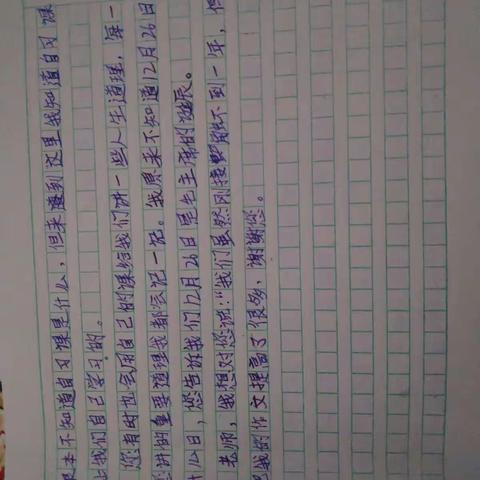 本不知道自习课是什么,但来到这里我知道自习课
我们自己学习的。
您有时也会用自己的课给我们讲一些人生道理,每一
讲的重要道理我都会记一记。我原来不知道12月26日
什么日,您告诉我们12月26日是毛主席的诞辰。
老师,我想对您说:“我们虽然刚接触不到一年,但
我的作文提高了很多,谢谢您。